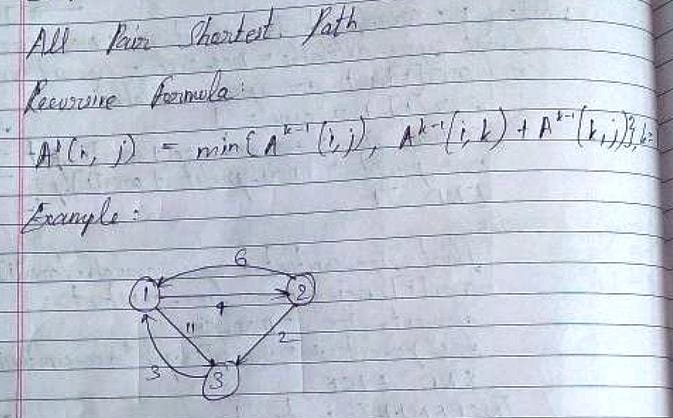 All Pair Shortest Path
Recursive Formula:
A^k(i, j) = min{A^{k-1}(i,j), A^{k-1}(i,k) + A^{k-1}(k,j)},
Example:
6
1 2
4
11 2
3 3